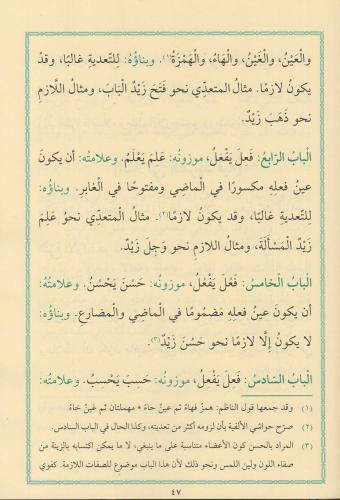 والْعَيْنُ، والْغَيْنُ، والْهَاءُ، والْهَمْزَةُ(١). وبناؤُهُ: لِلتَّعديةِ غالبًا، وقدْ
يكونُ لازمًا. مثالُ المتعدِّي نحو فَتَحَ زَيْدٌ الْبَابَ، ومثالُ اللَّازمِ
نحو ذَهَبَ زَيْدٌ.
الْبابُ الرَّابعُ: فَعِلَ يَفْعَلُ، موزونُه: عَلِمَ يَعْلَمُ. وعلامتُه: أن يكونَ
عينُ فعلِهِ مكسورًا في الْماضِي ومفتوحًا في الْغابرِ. وبناؤُه:
للتَّعديةِ غالبًا، وقد يكونُ لازمًا(٢). مثالُ الْمتعدِّي نحوُ عَلِمَ
زَيْدٌ الْمَسْأَلَةَ، ومثالُ اللازمِ نحو وَجِلَ زَيْدٌ.
الْبابُ الْخامسُ: فَعُلَ يَفْعُلُ، موزونُه: حَسُنَ يَحْسُنُ. وعلامتُهُ:
أن يكونَ عينُ فعلِهِ مَضمُومًا في الْماضِي والْمضارعِ. وبناؤُه:
لا يكونُ إلَّا لازمًا نحو حَسُنَ زَيْدٌ(٣).
الْبابُ السَّادسُ: فَعِلَ يَفْعِلُ، موزونُه: حَسِبَ يَحْسِبُ. وعلامتُه:
(١) وقد جمعها قول الناظم: همزٌ فهاءٌ ثم عينٌ حاءٌ * مهملتان ثم غينٌ خاءٌ
(٢) صرّح حواشي الألفية بأن لزومه أكثر من تعديته، وكذا الحال في الباب السادس.
(٣) المراد بالحسن كون الأعضاء متناسبة على ما ينبغي، لا ما يمكن اكتسابه بالزينة من
صفاء اللون ولين اللمس ونحو ذلك لأن هذا الباب موضوع للصفات اللازمة. كفوي
٤٧